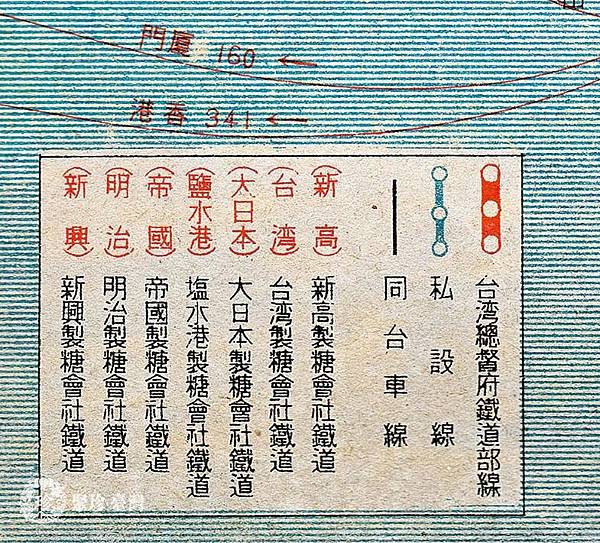 門廈 160 ←
港香 341 ←
台湾總督府鐵道部線
私設線
同台車線
(新高) 新高製糖會社鐵道
(台湾) 台湾製糖會社鐵道
(大日本) 大日本製糖會社鐵道
(鹽水港) 塩水港製糖會社鐵道
(帝國) 帝國製糖會社鐵道
(明治) 明治製糖會社鐵道
(新興) 新興製糖會社鐵道
聚珍臺灣